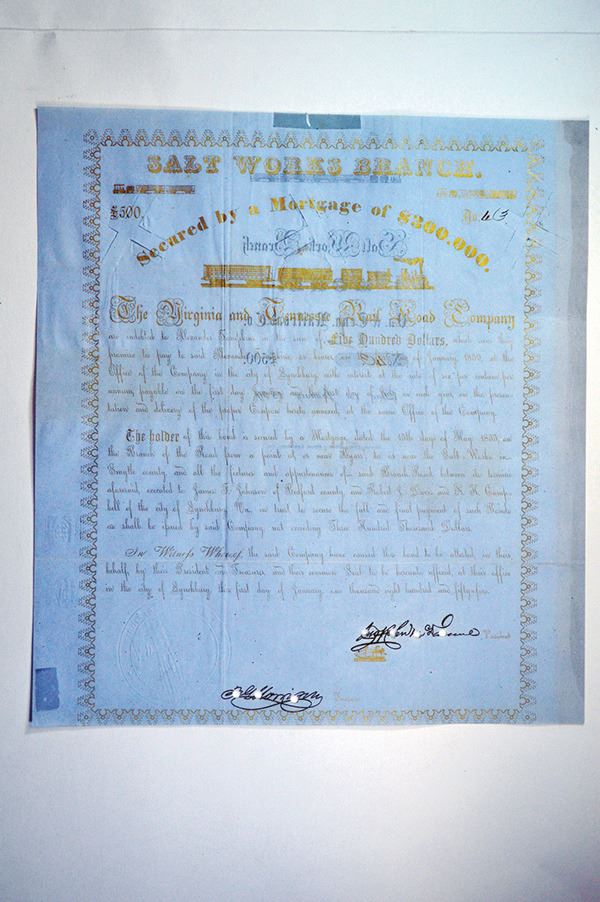 SALT WORKS BRANCH.
$500. No. 43
Secured by a Mortgage of $300.000.
The Virginia and Tennessee Rail Road Company
are indebted to Alexander Tompkins in the sum of Five Hundred Dollars, which sum they
promise to pay to said Alexander Tompkins or bearer on the of January 1859, at the
Office of the Company in the city of Lynchburg with interest at the rate of six per centum per
annum, payable on the first day of and first day of July in each year on the presen-
tation and delivery of the proper Coupon hereto annexed, at the same Office of the Company.
The holder of this bond is secured by a Mortgage, dated the 15th day of May 1855, on
the Branch of the Road from a point at or near to at or near the Salt Works in
Smythe county and all the fixtures and appurtenances for said Branch Road between its termini
aforesaid, executed to James F. Johnson of Bedford county, and Robert J. Davis and Camp-
bell of the city of Lynchburg Va. in trust to secure the full and final payment of such Bonds
as shall be issued by said Company, not exceeding Three Hundred Thousand Dollars.
In Witness Whereof, the said Company have caused this bond to be attested in their
behalf, by their President and Treasurer and their common Seal to be hereunto affixed, at their office
in the city of Lynchburg this first day of January, one thousand eight hundred and fifty-five.
President